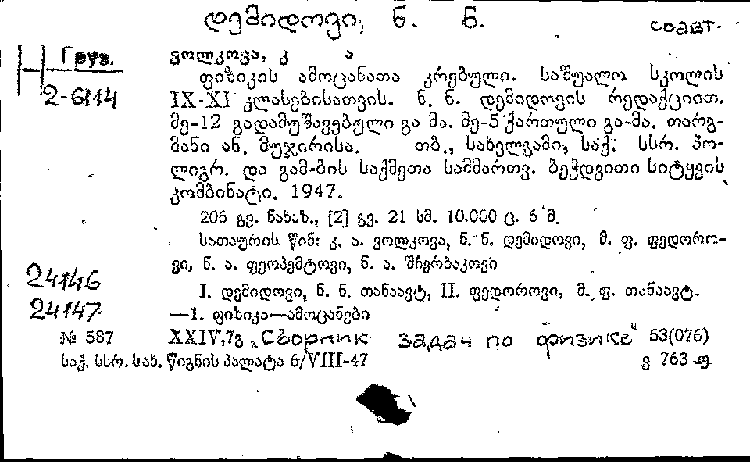 დემიდოვი, ნ. ნ. соавт.
Груз. ვოლკოვა, კ ა
ფიზიკის ამოცანათა კრებული. საშუალო სკოლის
2-6114 IX-XI კლასებისათვის. ნ. ნ. დემიდოვის რედაქციით.
მე-12 გადამუშავებული გა მა. მე-5 ქართული გა-მა. თარგ-
მანი ან. მუჯირისა. თბ., სახელგამი, საქ. სსრ. პო-
ლიგრ. და გამ-ბის საქმეთა სამმართვ. ბეჭდვითი სიტყვის
კომბინატი. 1947.
206 გვ. ნახაზ., [2] გვ. 21 სმ. 10.000 ც. 6 მ.
სათაურის წინ: კ. ა. ვოლკოვა, ნ. ნ. დემიდოვი, მ. ფ. ფედორო-
ვი, ნ. ა. ფეოპემტოვი, ნ. ა. შჩერბაკოვი
24146 I. დემიდოვი, ნ. ნ. თანაავტ, II. ფედოროვი, მ. ფ. თანაავტ.
24147 —1. ფიზიკა—ამოცანები
№ 587 XXIV,7ვ „Сборник задач по физике“ 53(076)
საქ. სსრ. სახ. წიგნის პალატა 6/VIII-47 ვ 763 ფ